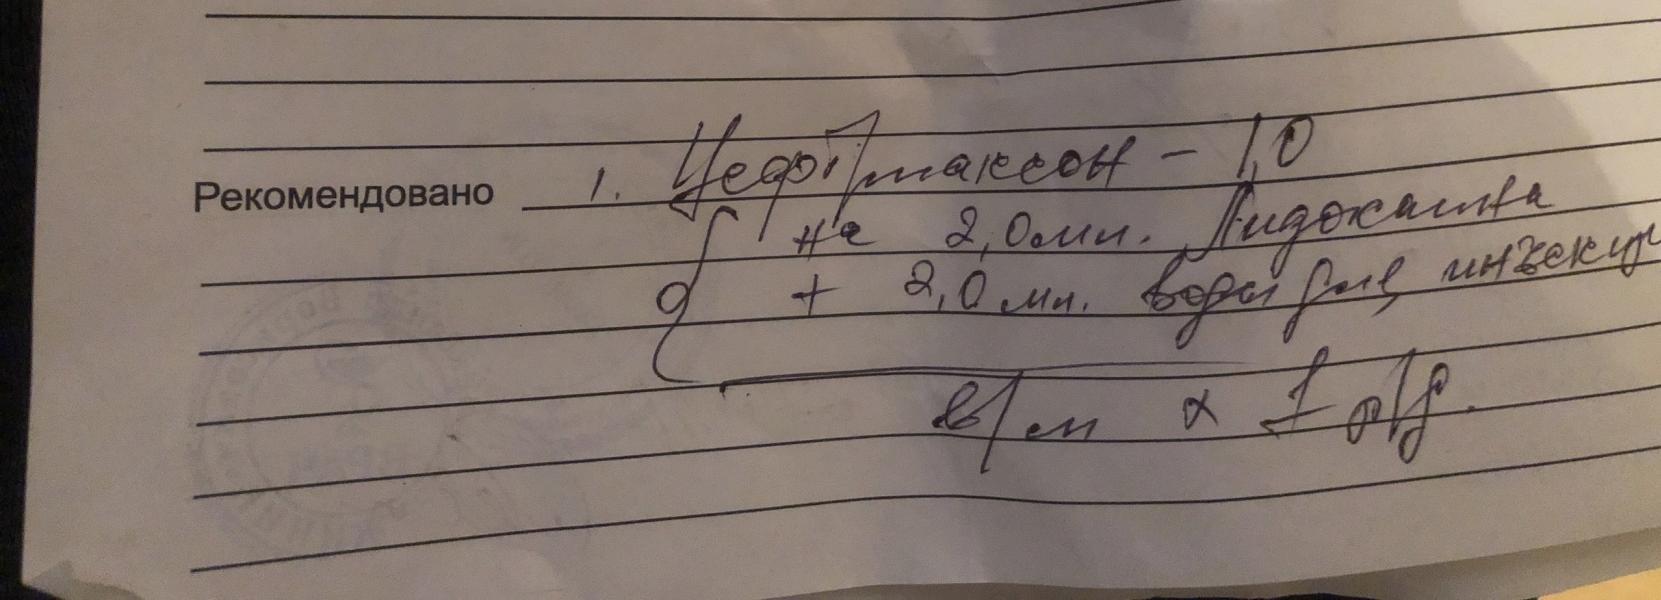 Рекомендовано 1. Цефтриаксон - 1,0
на 2,0 мл. Лидокаина
+ 2,0 мл. воды для инъекци
в/м х 1 р/д.